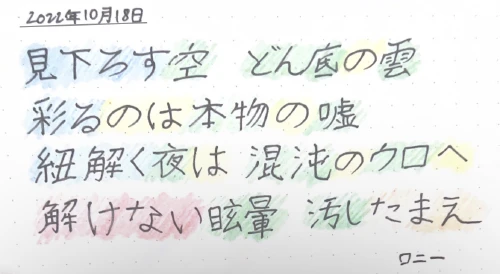 2022年10月18日
見下ろす空 どん底の雲
彩るのは本物の嘘
紐解く夜は 混沌のウロへ
解けない眩暈 汚したまえ
ロニー